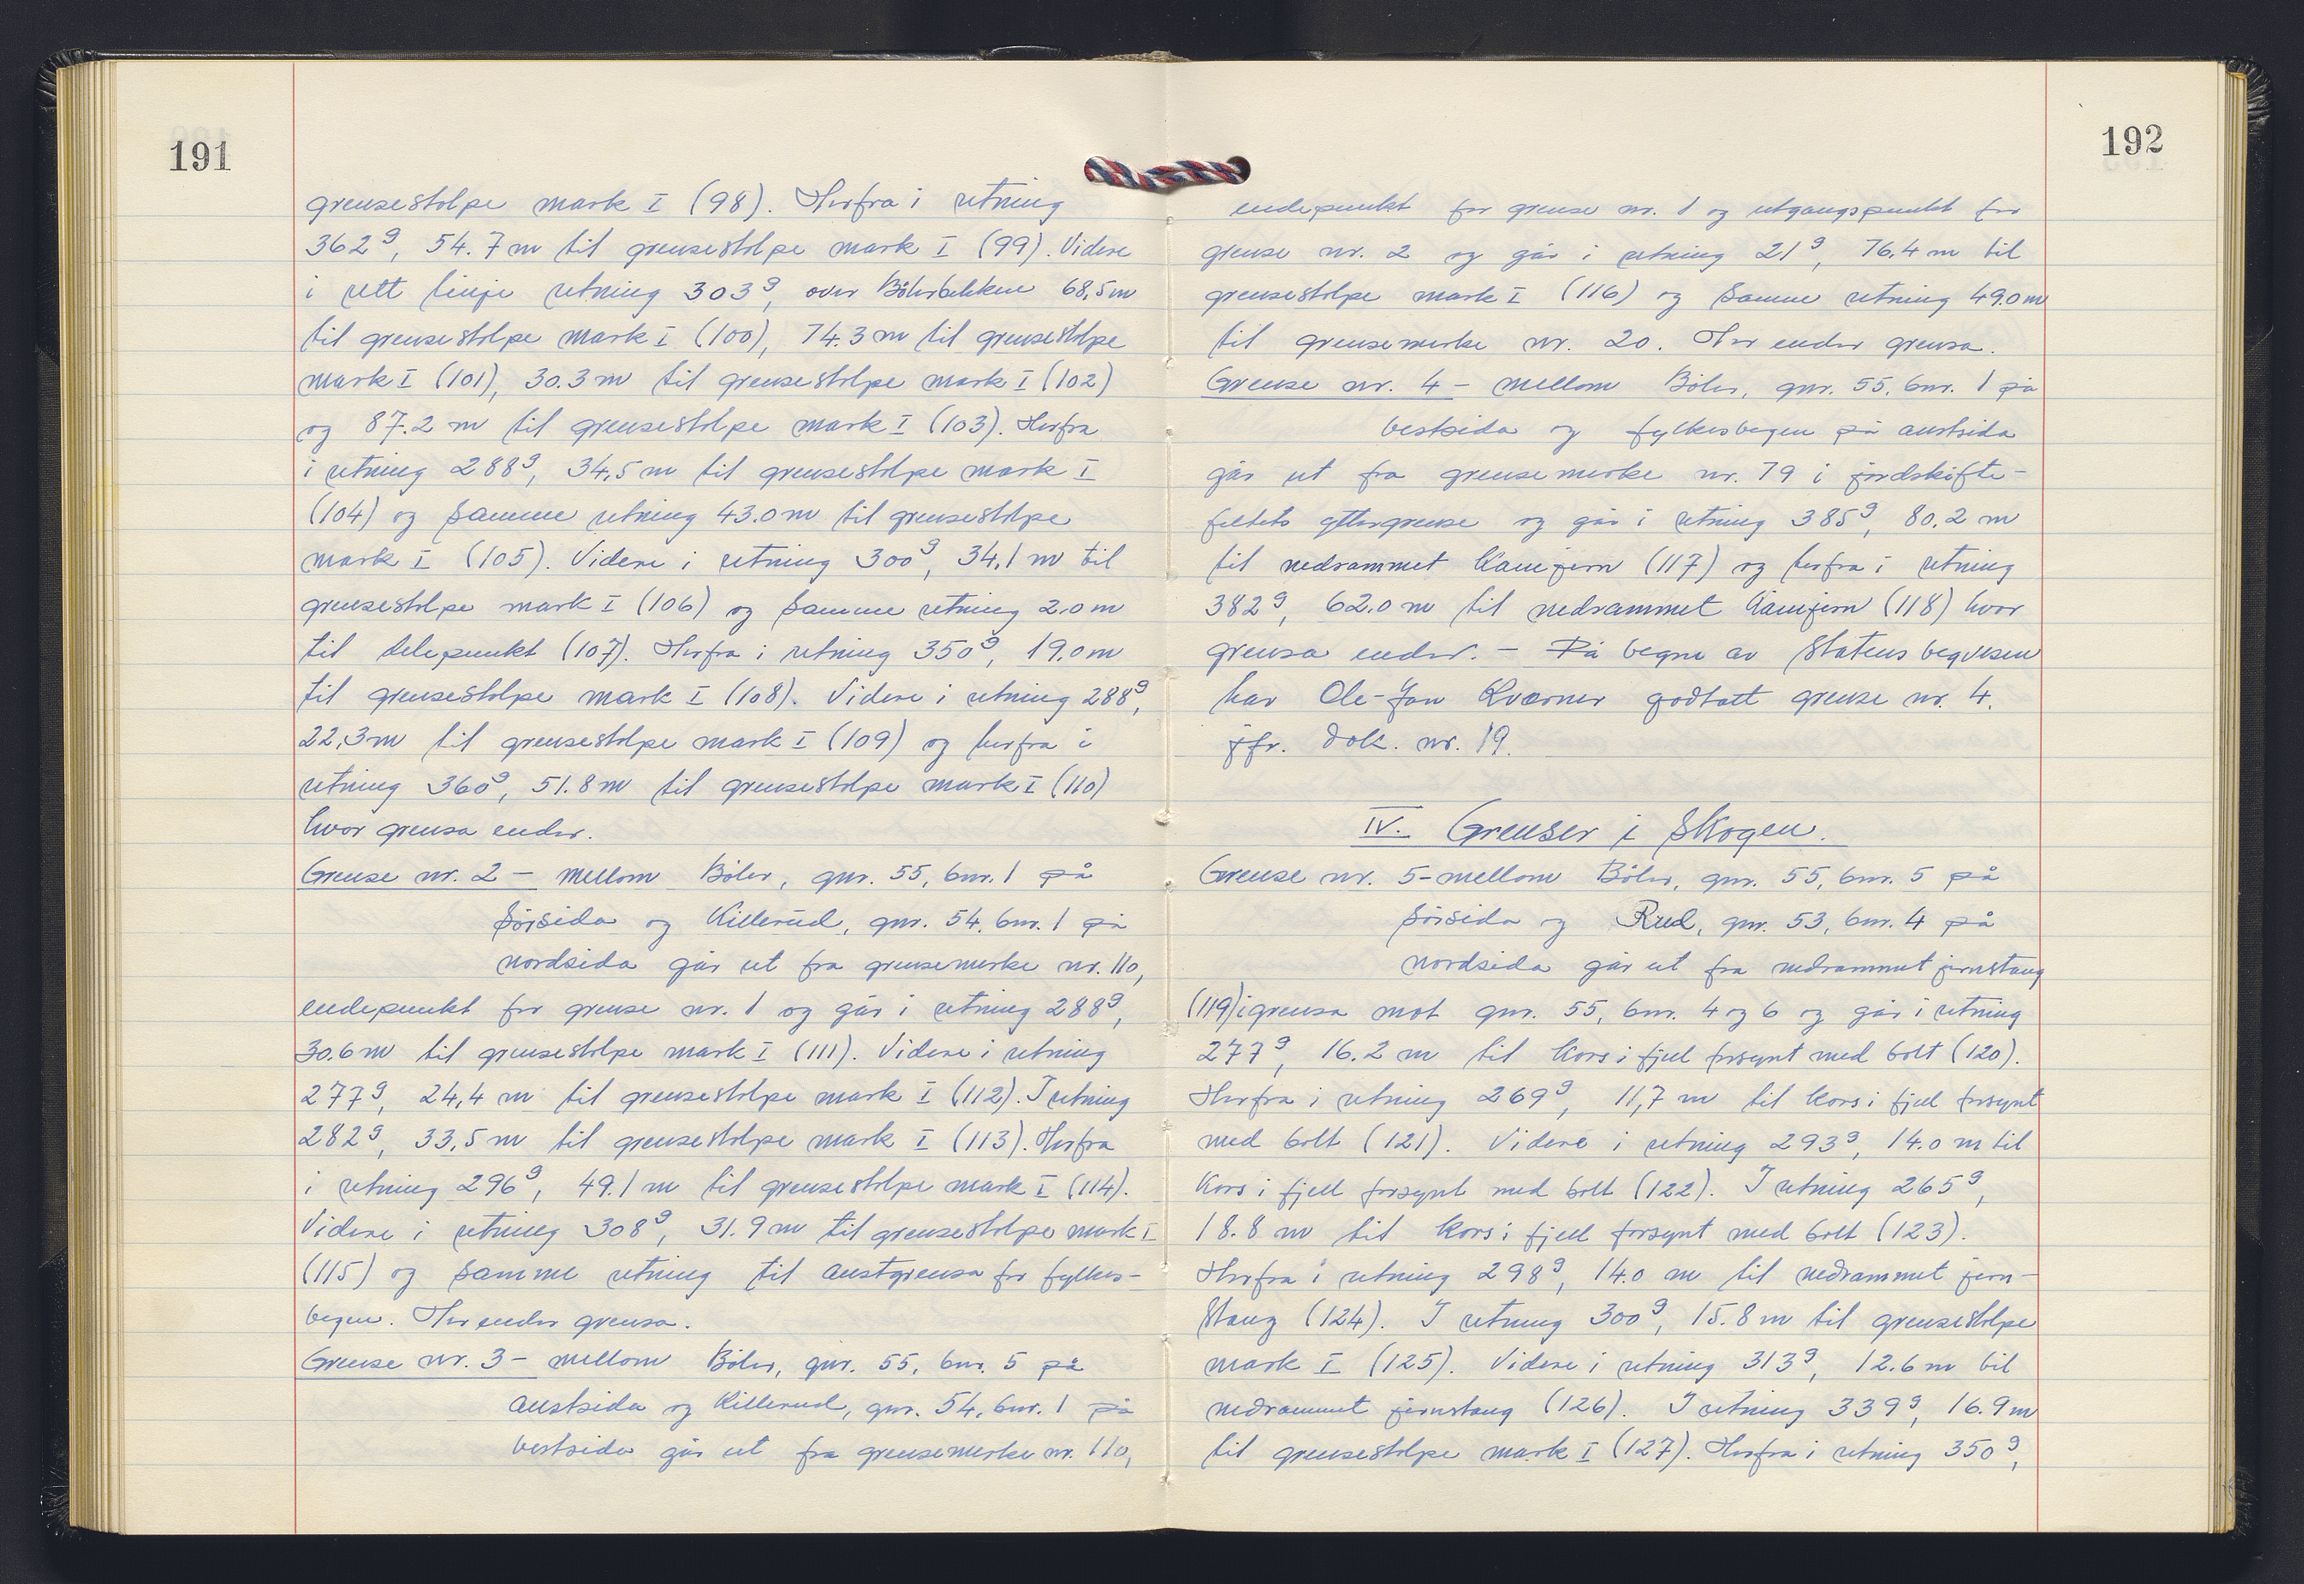 191
grensestolpe mark I (98). Herfra i retning
362g, 54.7 m til grensestolpe mark I (99). Videre
i rett linje retning 303g, over Bölerbekken 68,5 m
til grensestolpe mark I (100), 74.3 m til grensestolpe
mark I (101), 30.3 m til grensestolpe mark I (102)
og 87.2 m til grensestolpe mark I (103). Herfra
i retning 288g, 34,5 m til grensestolpe mark I
(104) og samme retning 43.0 m til grensestolpe
mark I (105). Videre i retning 300g, 34,1 m til
grensestolpe mark I (106) og samme retning 2.0 m
til delepunkt (107). Herfra i retning 350g, 19.0 m
til grensestolpe mark I (108). Videre i retning 288g,
22,3 m til grensestolpe mark I (109) og herfra i
retning 360g, 51.8 m til grensestolpe mark I (110)
hvor grensa ender.
Grense nr. 2 - mellom Böler, gnr. 55, bnr. 1 på
sørsida og Killerud, gnr. 54, bnr. 1 på
nordsida går ut fra grensemerke nr. 110,
endepunkt for grense nr. 1 og går i retning 288g,
30.6 m til grensestolpe mark I (111). Videre i retning
277g, 24,4 m til grensestolpe mark I (112). I retning
282g, 33,5 m til grensestolpe mark I (113). Herfra
i retning 296g, 49.1 m til grensestolpe mark I (114).
Videre i retning 308g, 31.9 m til grensestolpe mark I
(115) og samme retning til austgrensa for fylkes-
vegen. Her ender grensa.
Grense nr. 3 - mellom Böler, gnr. 55, bnr. 5 på
austsida og Killerud, gnr. 54, bnr. 1 på
vestsida går ut fra grensemerke nr. 110,
192
endepunkt for grense nr. 1 og utgangspunkt for
grense nr. 2 og går i retning 21g, 76,4 m til
grensestolpe mark I (116) og samme retning 49.0 m
til grensemerke nr. 20. Her ender grensa.
Grense nr. 4 - mellom Böler, gnr. 55, bnr. 1 på
vestsida og fylkesvegen på austsida
går ut fra grensemerke nr. 79 i jordskifte-
feltets yttergrense og går i retning 385g, 80.2 m
til nedrammet kamjern (117) og herfra i retning
382g, 62.0 m til nedrammet kamjern (118) hvor
grensa ender. - På vegne av Statens vegvesen
har Ole-Jan Kværner godtatt grense nr. 4.
jfr. dok. nr. 19.
IV. Grenser i Skogen.
Grense nr. 5 - mellom Böler, gnr. 55, bnr. 5 på
sørsida og Rud, gnr. 53, bnr. 4 på
nordsida går ut fra nedrammet jernstang
(119) i grensa mot gnr. 55, bnr. 4 og 6 og går i retning
277g, 16.2 m til kors i fjell forsynt med bolt (120).
Herfra i retning 269g, 11,7 m til kors i fjell forsynt
med bolt (121). Videre i retning 293g, 14.0 m til
kors i fjell forsynt med bolt (122). I retning 265g,
18.8 m til kors i fjell forsynt med bolt (123).
Herfra i retning 298g, 14.0 m til nedrammet jern-
stang (124). I retning 300g, 15.8 m til grensestolpe
mark I (125). Videre i retning 313g, 12.6 m til
nedrammet jernstang (126). I retning 339g, 16.9 m
til grensestolpe mark I (127). Herfra i retning 350g,